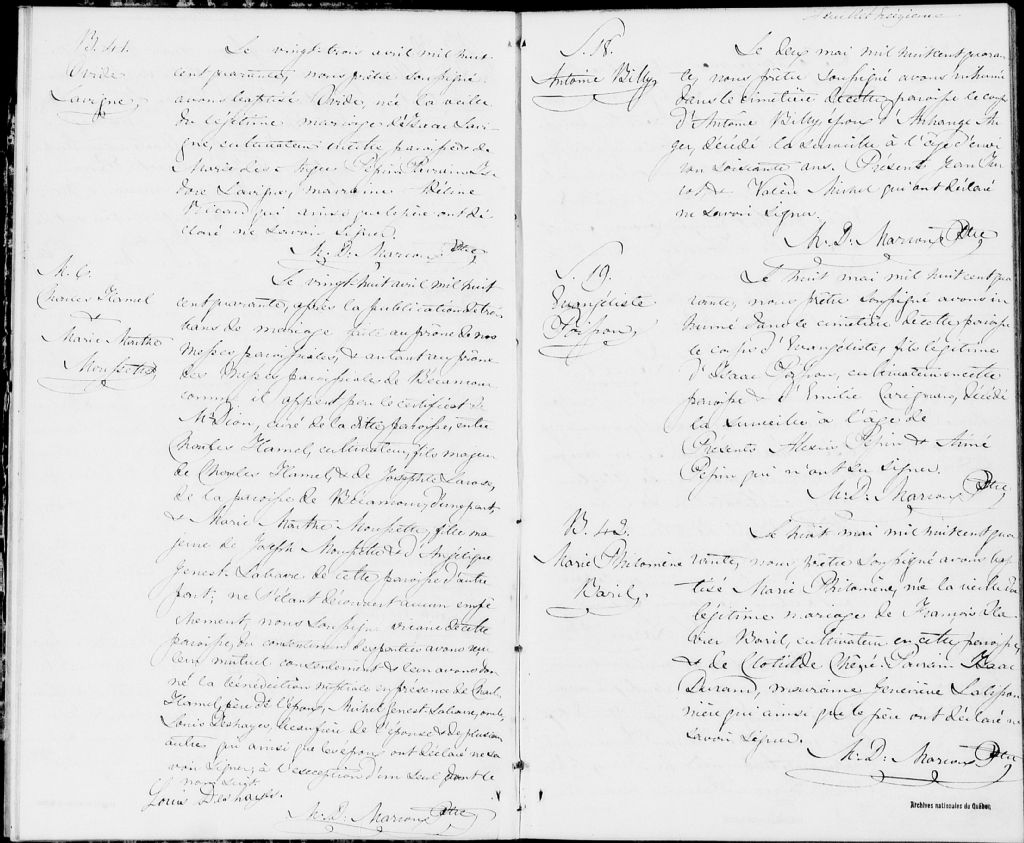 B. 41.
Ovide
Lavigne,
Le vingt-trois avril mil huit-
cent quarante, nous prêtre soussigné
avons baptisé Ovide, né la veille
du légitime mariage d'Isaac Lavi-
gne, cultivateur en cette paroisse & de
Marie Pepin. Parrain Isi-
dore Lavigne, marraine Hélène
qui ainsi que le père ont dé-
claré ne savoir signer.
M. D. Marcoux Ptre
M. 6.
Charles Hamel
&
Marie Marthe
Moussette
Le vingt-huit avril mil huit
cent quarante, après la publication de trois
bans de mariage faite au prône de nos
Messes paroissiales, & autant au prône
des Messes paroissiales de Bécancour
comme il appert par le certificat de
Mr Dion, curé de la dite paroisse, entre
Charles Hamel, cultivateur, fils majeur
de Charles Hamel, & de Josephte Larose,
de la paroisse de Bécancour, d'une part,
& Marie Marthe Moussette, fille ma-
jeure de Joseph Moussette & d'Angélique
Genest Labarre de cette paroisse d'autre
part; ne s'étant découvert aucun empê-
chement, nous soussigné vicaire de cette
paroisse, du consentement des parties avons reçu
leur mutuel consentement & leur avons don-
né la bénédiction nuptiale en présence de Charles
Hamel, père de l'époux, Michel Genest Labarre, oncle,
Louis Deshayes, beaufrère de l'épouse & de plusieurs
autres qui ainsi que les époux ont déclaré ne sa-
voir signer, à l'exception d'un seul dont le
nom suit.
Louis Deshayes.
M. D. Marcoux Ptre
Feuillet treizième
S. 18.
Antoine Billy,
Le deux mai mil huit cent quaran-
te, nous prêtre soussigné avons inhumé
dans le cimetière de cette paroisse le corps
d'Antoine Billy, époux d'Archange An-
ger, décédé la surveille à l'âge d'envi-
ron soixante ans. Présents Jean
& Valère Michel qui ont déclaré
ne savoir signer.
M. D. Marcoux Ptre
S. 19.
Evangéliste
Poisson,
Le huit mai mil huit cent qua-
rante, nous prêtre soussigné avons in-
humé dans le cimetière de cette paroisse
le corps d'Evangéliste, fils légitime
d'Isaac Poisson, cultivateur en cette
paroisse & d'Emilie Carignan, décédé
la surveille à l'âge de
Présents Alexis Pepin & Aimé
Pepin qui n'ont su signer.
M. D. Marcoux Ptre
B. 42.
Marie Philomène
Baril,
Le huit mai mil huit cent qua-
rante, nous prêtre soussigné avons bap-
tisé Marie Philomène, née la veille du
légitime mariage de François Xa-
vier Baril, cultivateur en cette paroisse,
& de Clotilde Parrain Isaac
Durand, marraine Geneviève
qui ainsi que le père ont déclaré ne
savoir signer.
M. D. Marcoux Ptre
Archives nationales du Québec